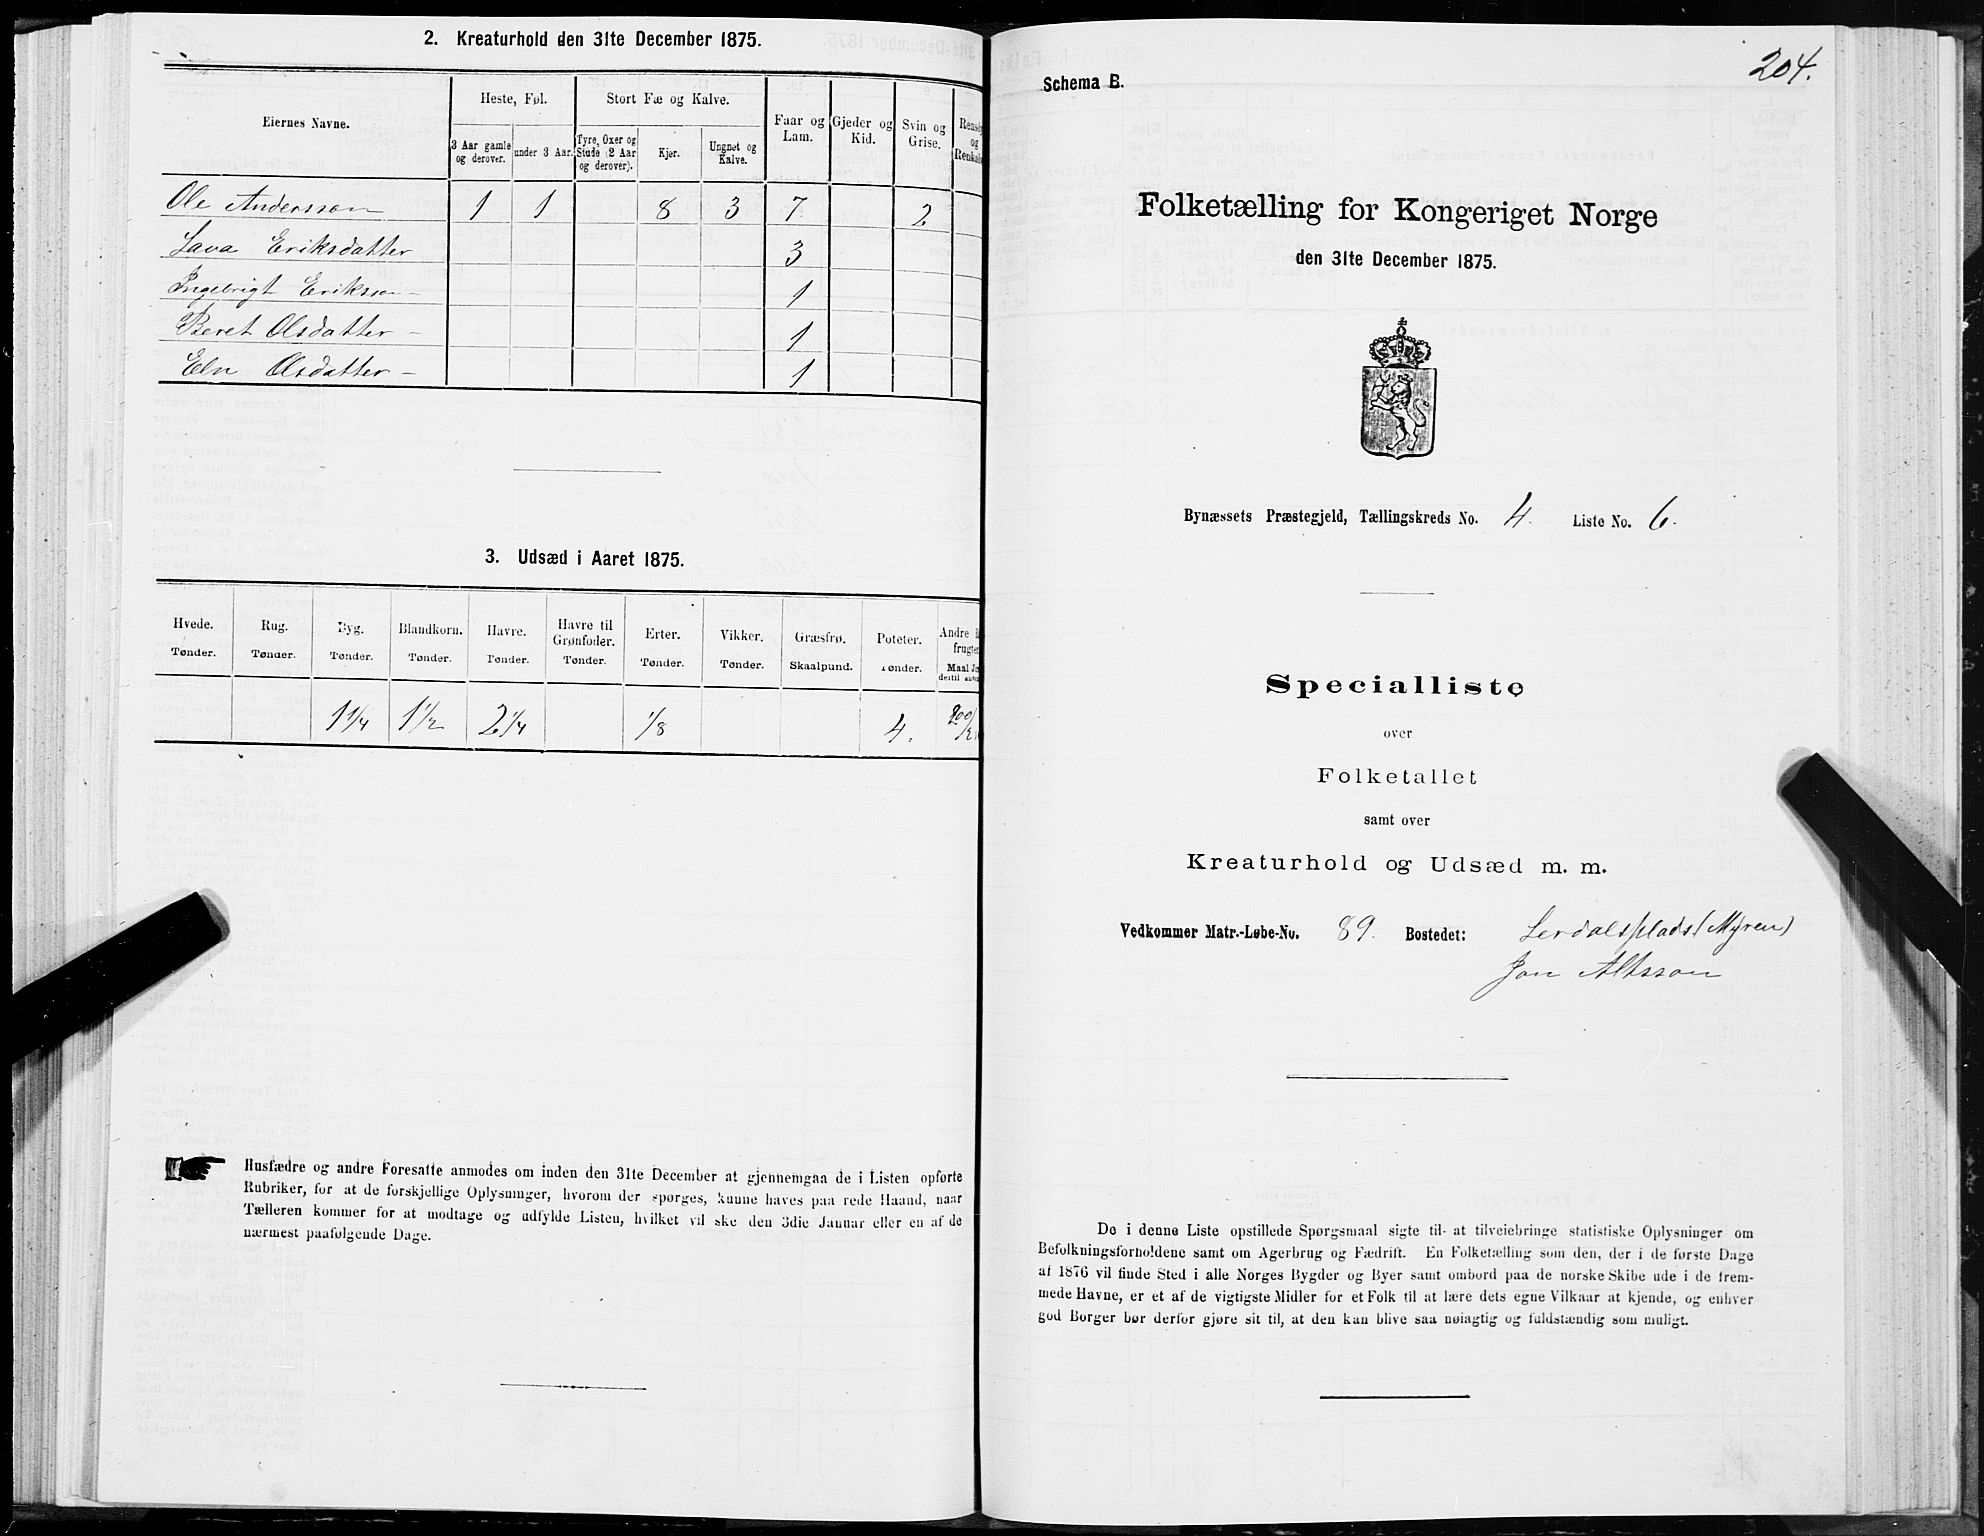 2. Kreaturhold den 31te December 1875.
Eiernes Navne.
Heste, Føl.
Stort Fæ og Kalve.
Faar og Lam.
Gjeder og Kid.
Svin og Grise.
og
3 Aar gamle og derover.
under 3 Aar.
Tyre, Oxer og Stude (2 Aar og derover).
Kjer.
Ungnøt og Kalve.
Ole Andersson 1 1 8 3 7 2
Eriksdatter 3
Ingebrigt Erikson 1
Beret Olsdatter – 1
Olsdatter – 1
3. Udsæd i Aaret 1875.
Hvede. Rug. Byg. Blandkorn. Havre. Havre til Grønfoder. Erter. Vikker. Græsfrø. Poteter. Andre
Tønder. Tønder. Tønder. Tønder. Tønder. Tønder. Tønder. Tønder. Skaalpund. Tønder. Maal
1 1/4 1 1/2 2 1/4 1/8 4.
Husfædre og andre Foresatte anmodes om inden den 31te December at gjennemgaa de i Listen opførte
Rubriker, for at de forskjellige Oplysninger, hvorom der spørges, kunne haves paa rede Haand, naar
Tælleren kommer for at modtage og udfylde Listen, hvilket vil ske den 3die Januar eller en af de
nærmest paafølgende Dage.
204.
Schema B.
Folketælling for Kongeriget Norge
den 31te December 1875.
Bynæssets Præstegjeld, Tællingskreds No. 4. Liste No. 6.
Specialliste
over
Folketallet
samt over
Kreaturhold og Udsæd m. m.
Vedkommer Matr.-Løbe-No. 89. Bostedet: Lerdalsplads (Myren)
Jon
De i denne Liste opstillede Spørgsmaal sigte til at tilveiebringe statistiske Oplysninger om
Befolkningsforholdene samt om Agerbrug og Fædrift. En Folketælling som den, der i de første Dage
af 1876 vil finde Sted i alle Norges Bygder og Byer samt ombord paa de norske Skibe ude i de frem-
mede Havne, er et af de vigtigste Midler for et Folk til at lære dets egne Vilkaar at kjende, og enhver
god Borger bør derfor gjøre sit til, at den kan blive saa nøiagtig og fuldstændig som muligt.